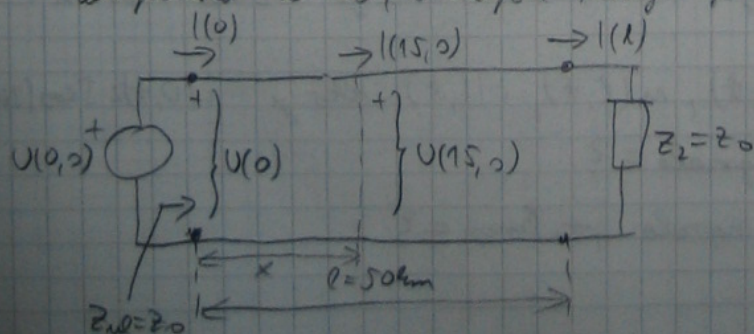 I(0) I(15,0) I(l)
+ +
U(0,0) + U(0) U(15,0) Z₂=Z₀
x l=50km
Zul=Z₀